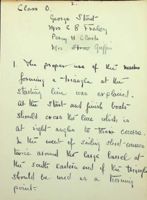 2.
Class D.
George Stout
Mrs C B
Percy H Clark
Mrs
1. The proper use of the
forming a triangle at the
starting line was explained.
At the start and finish boats
should cross the line which is
at right angles to their course.
In the event of sailing
twice around the large barrel at
the south eastern end of the triangle
should be used as a turning
point.